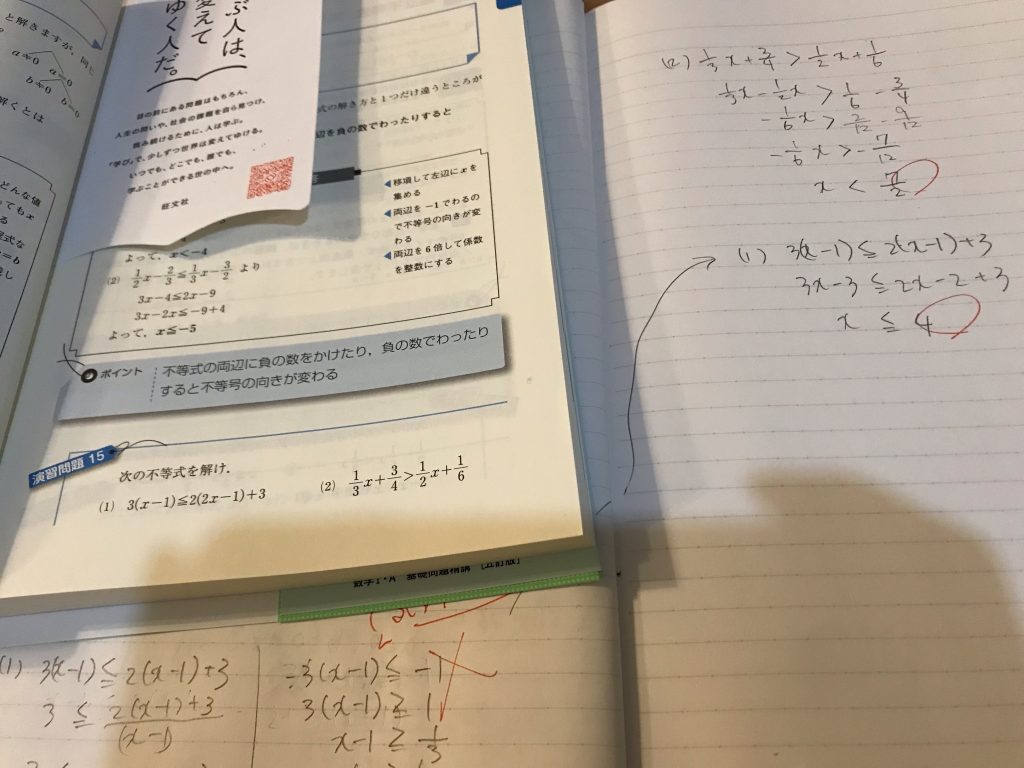 と解きますが，同じ
a≠0 a=0
b≠0 b=
解くとは
どんな値
ってもx
る
程式な
=b
ぶ人は、
変えて
ゆく人だ。
目の前にある問題はもちろん、
人生の問いや、社会の課題を自ら見つけ、
挑み続けるために、人は学ぶ。
「学び」で、少しずつ世界は変えてゆける。
いつでも、どこでも、誰でも、
学ぶことができる世の中へ。
旺文社
式の解き方と1つだけ違うところが
辺を負の数でわったりすると
よって，x<-4
(2) 1/2x-2/3≦1/3x-3/2 より
3x-4≦2x-9
3x-2x≦-9+4
よって，x≦-5
◀移項して左辺にxを
集める
◀両辺を-1でわるの
で不等号の向きが変
わる
◀両辺を6倍して係数
を整数にする
ポイント
不等式の両辺に負の数をかけたり，負の数でわったり
すると不等号の向きが変わる
演習問題 15
次の不等式を解け．
(1) 3(x-1)≦2(2x-1)+3
(2) 1/3x+3/4>1/2x+1/6
数学Ⅰ・A 基礎問題精講 [五訂版]
(2) 1/3x+3/4>1/2x+1/6
1/3x-1/2x>1/6-3/4
-1/6x>2/12-9/12
-1/6x>-7/12
x<7/2
(1) 3(x-1)≦2(x-1)+3
3x-3≦2x-2+3
x≦4
(1) 3(x-1)≦2(x-1)+3
3≦2(x-1)+3/(x-1)
-3(x-1)≦-1
3(x-1)≧1
x-1≧1/3